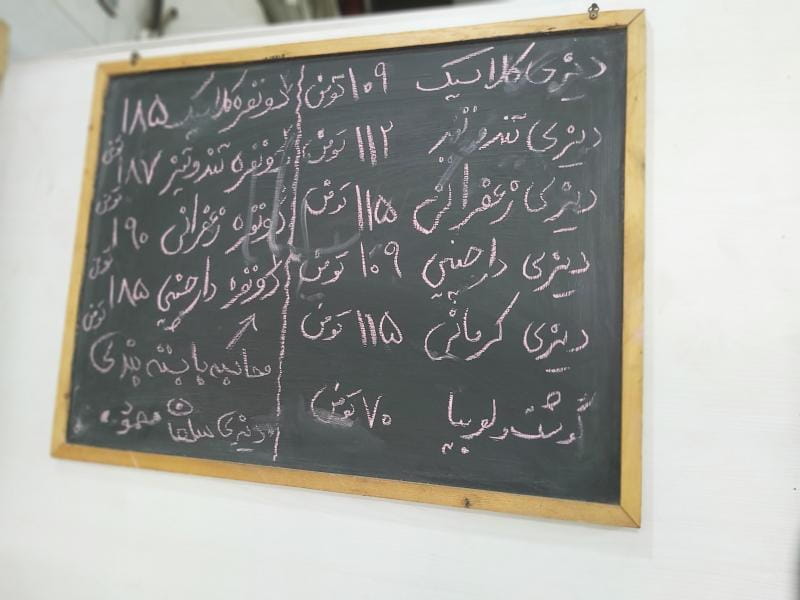 دیزی کلاسیک ۱۰۹ تومن
دیزی تندوتند ۱۱۲ تومن
دیزی زعفرانی ۱۱۵ تومن
دیزی دارچینی ۱۰۹ تومن
دیزی کرمانی ۱۱۵ تومن
گوشت و لوبیا ۷۰ تومن
دونفره کلاسیک ۱۸۵ تومن
دونفره تندوتیز ۱۸۷ تومن
دونفره زعفرانی ۱۹۰ تومن
دونفره دارچینی ۱۸۵ تومن
محاسبه با بسته بندی
دیزی سلطان محمود